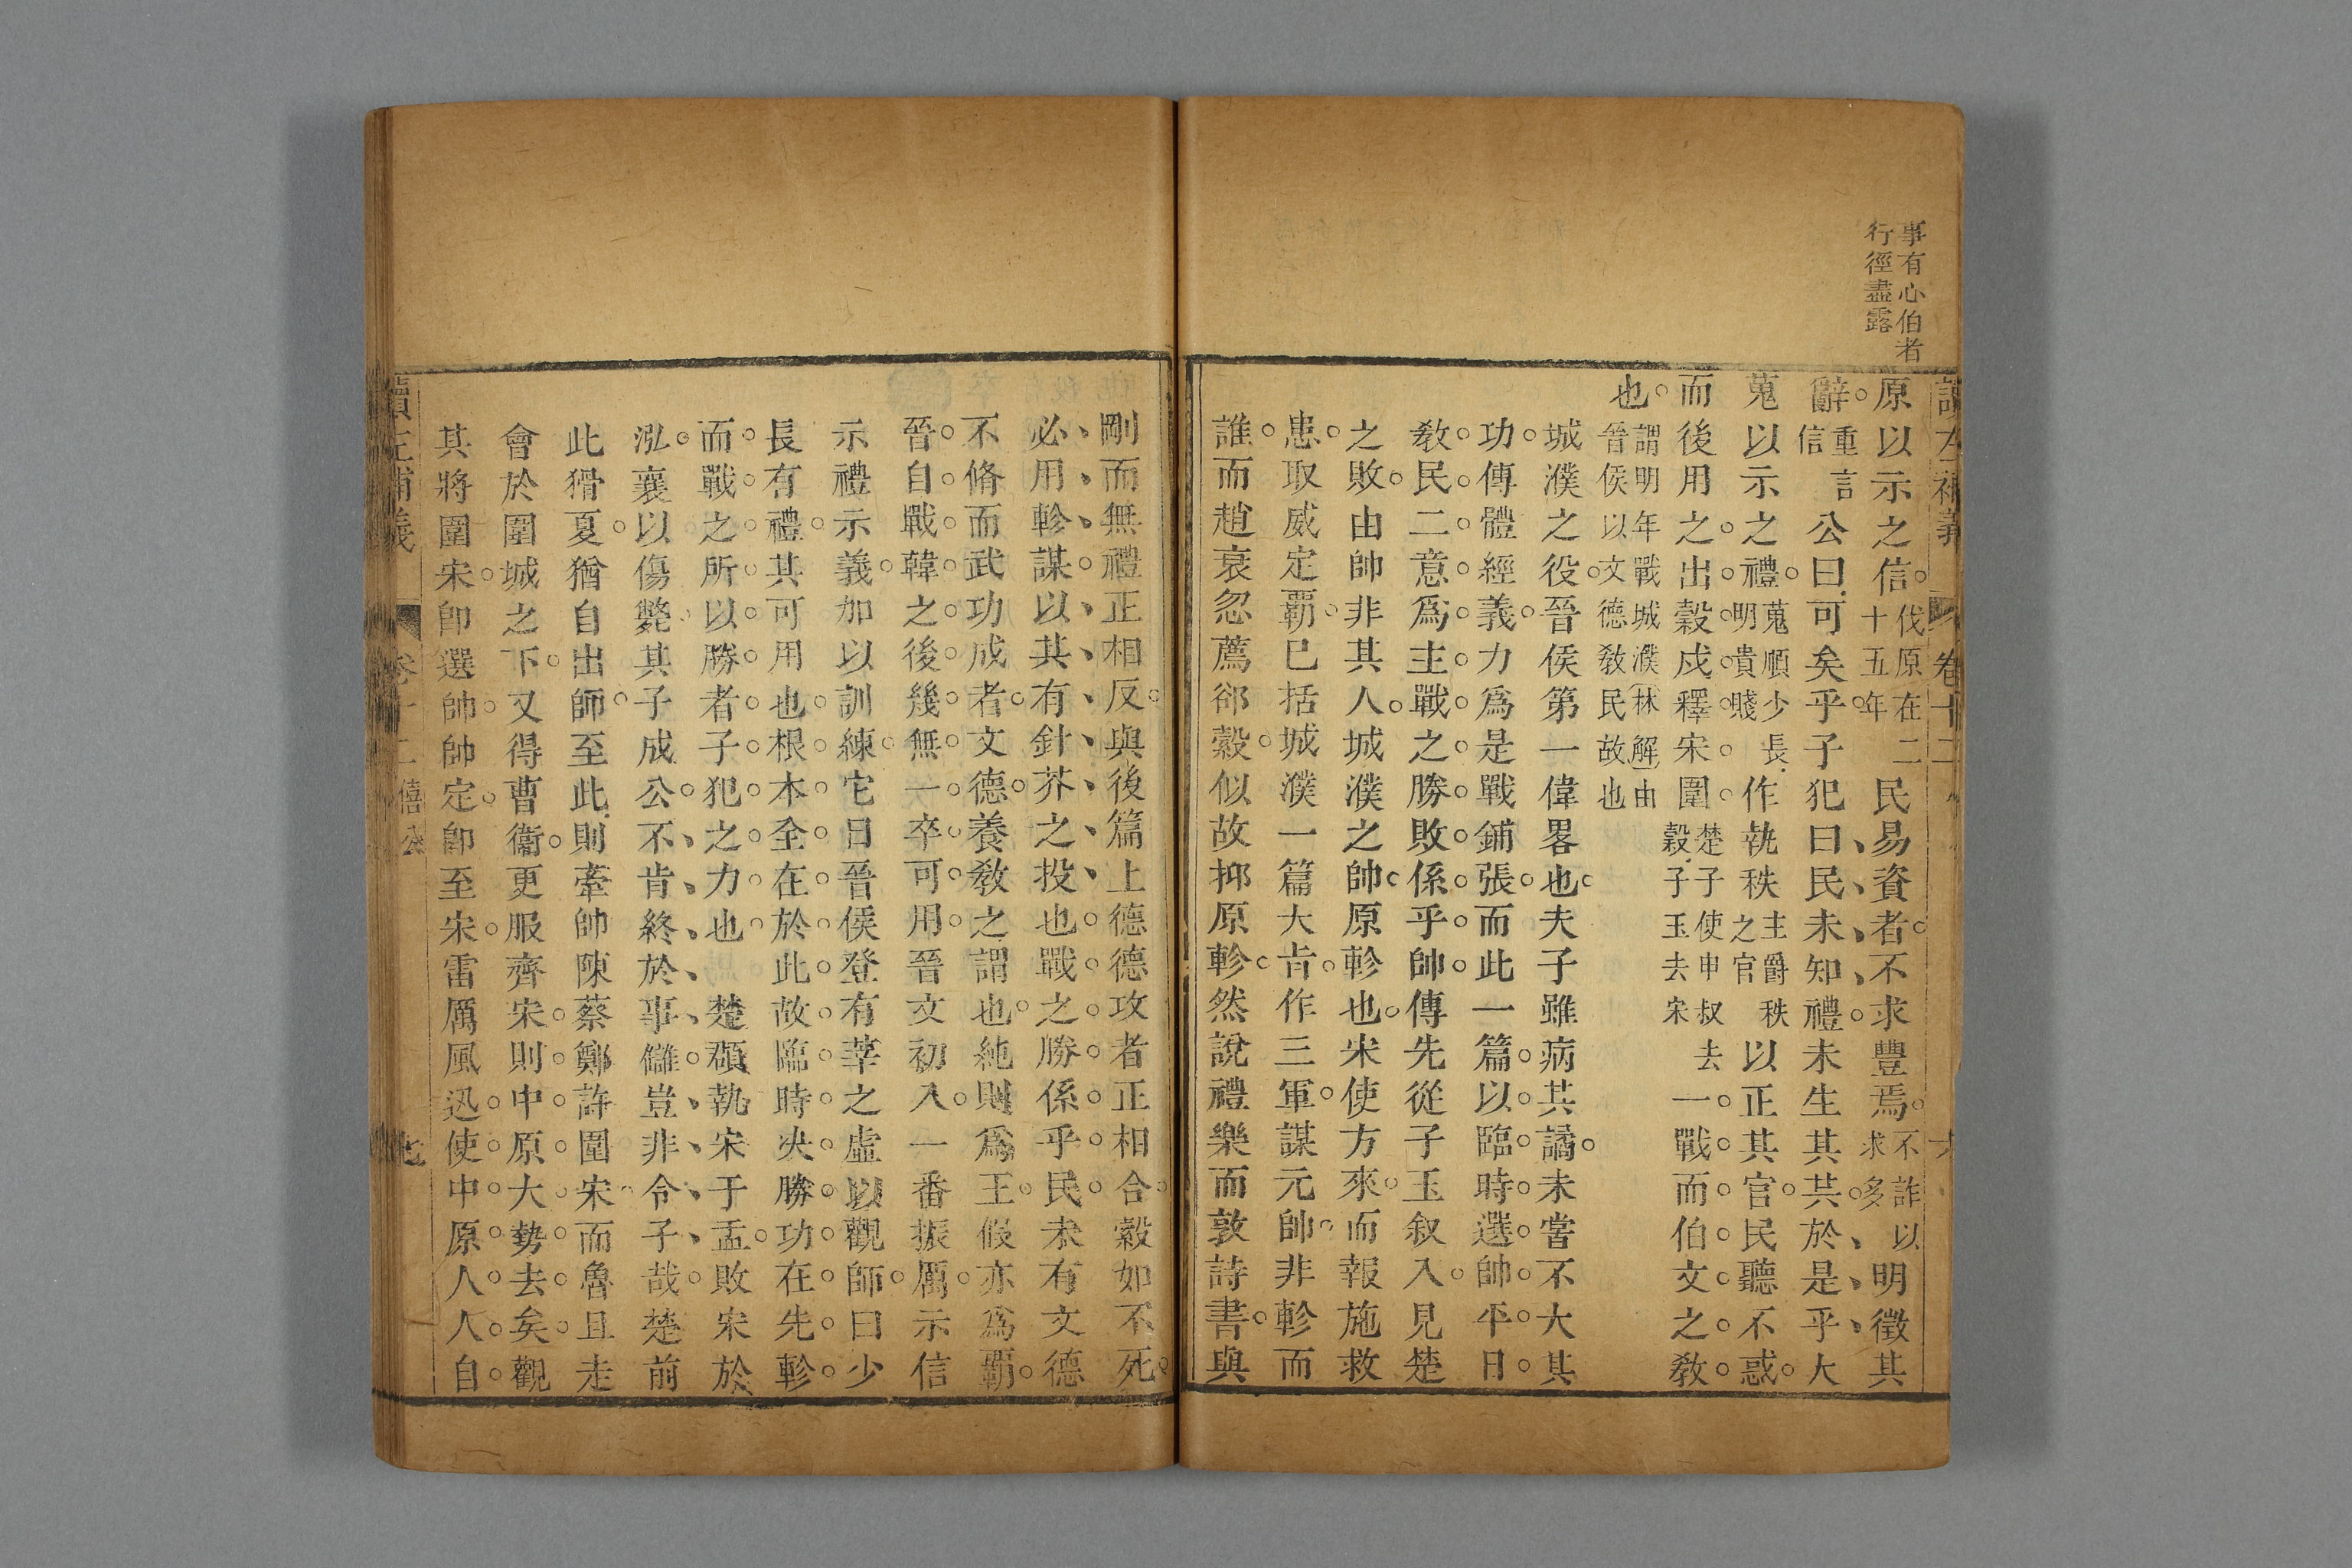 事有心伯者
行徑盡露
讀左補義 卷十二 六
原以示之信伐原在二十五年民易資者不求豐焉不詐以求多明徵其
辭重言信公曰可矣乎子犯曰民未知禮未生其共於是乎大
蒐以示之禮蒐順少長明貴賤作執秩主爵秩之官以正其官民聽不惑
而後用之出穀戍釋宋圍楚子使申叔去穀子玉去宋一戰而伯文之教
也謂明年戰城濮林解由晉侯以文德教民故也
城濮之役晉侯第一偉畧也夫子雖病其譎未嘗不大其
功傳體經義力為是戰鋪張而此一篇以臨時選帥平日
教民二意為主戰之勝敗係乎帥傳先從子玉叙入見楚
之敗由帥非其人城濮之帥原軫也宋使方來而報施救
患取威定霸已括城濮一篇大㫖作三軍謀元帥非軫而
誰而趙衰忽薦郤縠似故抑原軫然說禮樂而敦詩書與
剛而無禮正相反與後篇上德德攻者正相合縠如不死
必用軫謀以其有針芥之投也戰之勝係乎民未有文德
不脩而武功成者文德養教之謂也純則為王假亦為霸
晉自戰韓之後幾無一卒可用晉文初入一番振厲示信
示禮示義加以訓練它日晉侯登有莘之虛以觀師曰少
長有禮其可用也根本全在於此故臨時决勝功在先軫
而戰之所以勝者子犯之力也 楚頵執宋于盂敗宋於
泓襄以傷斃其子成公不肯終於事讎豈非令子哉楚前
此猾夏猶自出師至此則牽帥陳蔡鄭許圍宋而魯且走
會於圍城之下又得曹衞更服齊宋則中原大勢去矣觀
其將圍宋卽選帥帥定卽至宋雷厲風迅使中原人人自
讀左補義 卷十二 僖公 七